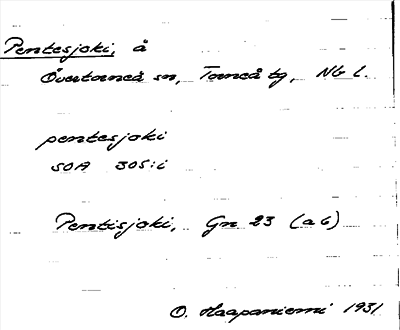 Pentesjoki, å
Övertorneå sn, Torneå tg, Nb l.
pentesjoki
SOA 305:i
Pentisjoki, Gn 23 (a6)
O. Haapaniemi 1931